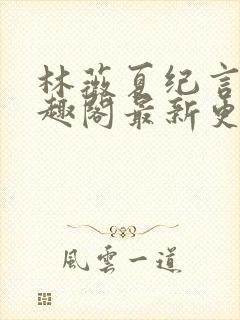 林薇夏纪言
趣阁最新更
風雲一道